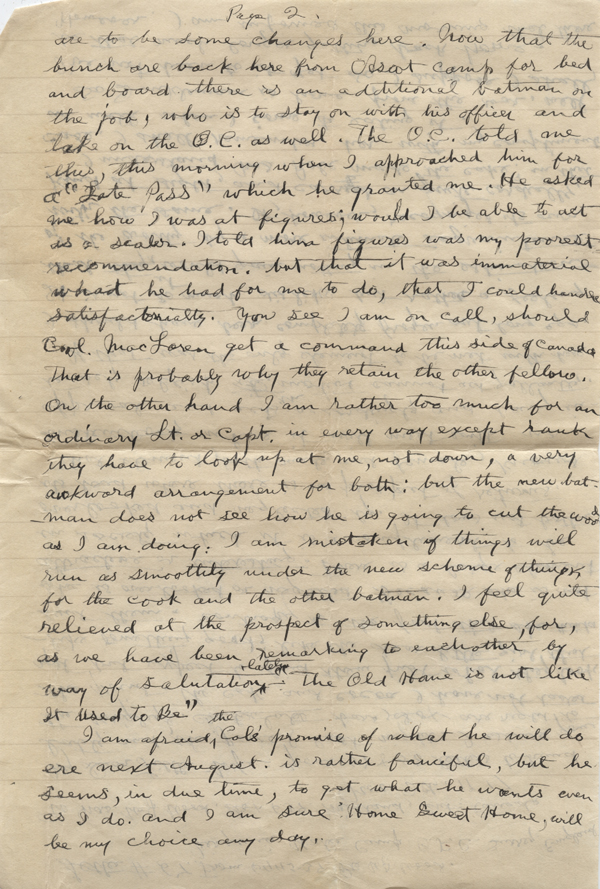 Page 2.
are to be some changes here. Now that the
bunch are back here from Ascot camp for bed
and board there is an additional batman on
the job, who is to stay on with his officer and
take on the O.C. as well. The O.C. told me
this, this morning when I approached him for
a "Late Pass" which he granted me. He asked
me how I was at figures; would I be able to act
as a scaler. I told him figures was my poorest
recommendation. but that it was immaterial
what he had for me to do, that I could handle
satisfactorialty. You see I am on call, should
Col. MacLaren get a command this side of Canada
That is probably why they retain the other fellow.
On the other hand I am rather too much for an
ordinary Lt. or Capt. in every way except rank
they have to look up at me, not down, a very
awkward arrangement for both: but the new bat-
man does not see how he is going to cut the wood
as I am doing: I am mistaken if things will
run as smoothity under the new scheme of things,
for the cook and the other batman. I feel quite
relieved at the prospect of something else, for,
as we have been remarking to eachother by
way of salutation lately "The Old Home is not like
It Used to Be"
I am afraid, the Col's promise of what he will do
ere next August. is rather fanciful, but he
seems, in due time, to get what he wants even
as I do. and I am sure 'Home Sweet Home, will
be my choice any day.